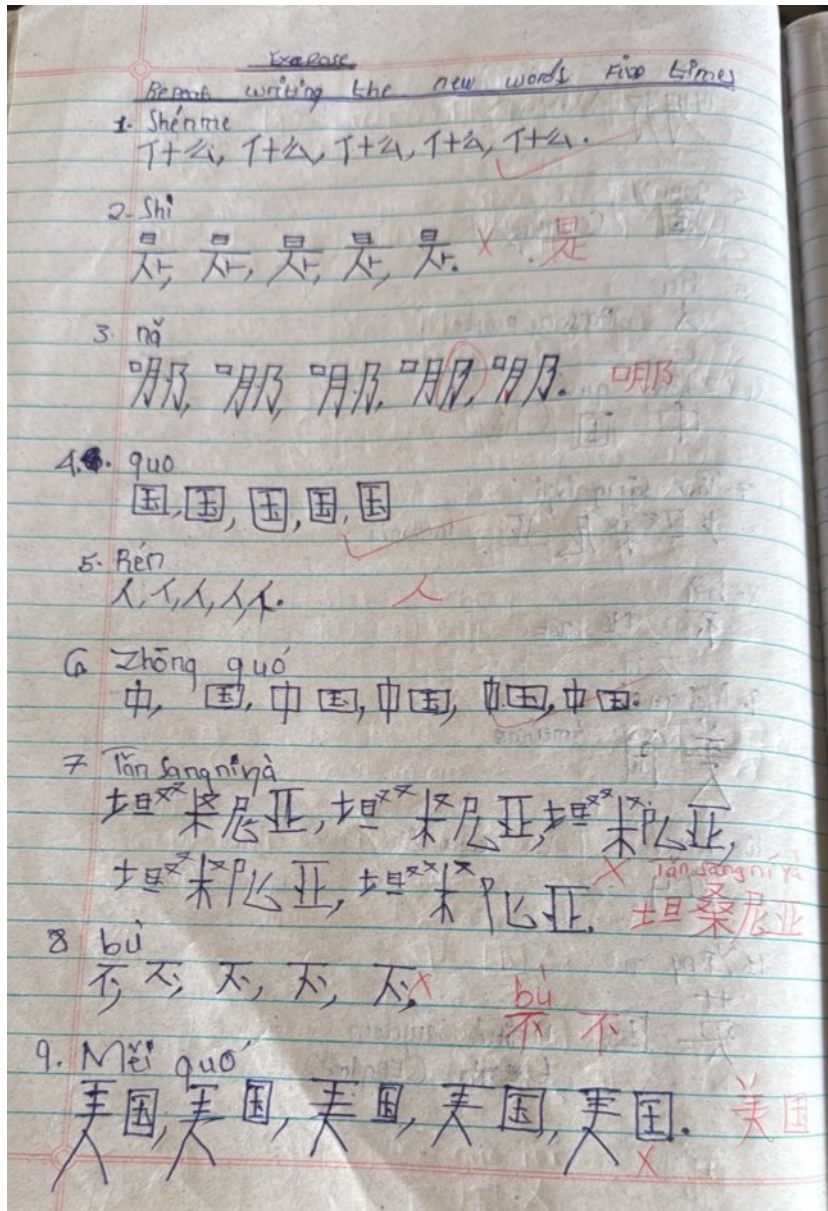 Exercise
Repeat writing the new words Five times
1. Shénme
什么, 什么, 什么, 什么, 什么.
2. Shì
是, 是, 是, 是, 是. X 是
3. nǎ
哪, 哪, 哪, 哪, 哪. 哪
4. quo
国, 国, 国, 国, 国
5. Rén
人, 人, 人, 人, 人. 人
6 Zhōng quó
中, 国, 中国, 中国, 中国, 中国.
7 Tǎn Sang ní yà
坦桑尼亚, 坦桑尼亚, 坦桑尼亚,
坦桑尼亚, 坦桑尼亚. X Tǎn sang ní yà
坦桑尼亚
8 bù
不, 不, 不, 不, 不, X bù
不 不
9. Měi quó
美国, 美国, 美国, 美国, 美国. 美国
X